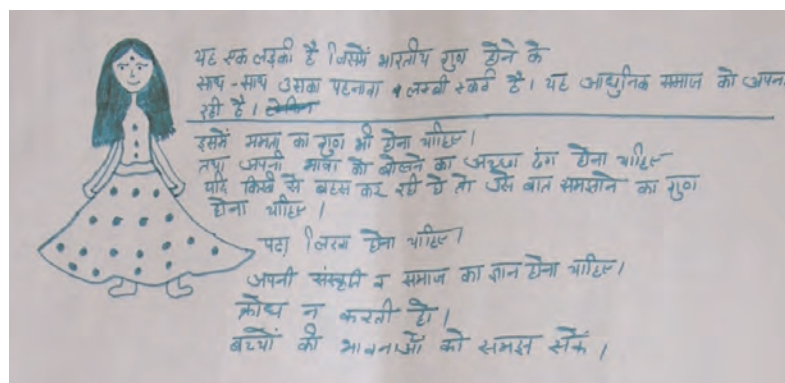 यह एक लड़की है जिसमें भारतीय गुण होने के
साथ-साथ उसका पहनावा व लम्बी स्कर्ट है। यह आधुनिक समाज को अपना
रही है।
इसमें ममता का गुण भी होना चाहिए।
तथा अपनी भाषा को बोलने का अच्छा ढंग होना चाहिए
यदि किसी से बहस कर रही है तो उसे बात समझाने का गुण
होना चाहिए।
पढ़ा लिखा होना चाहिए।
अपनी संस्कृति व समाज का ज्ञान होना चाहिए।
क्रोध न करती हो।
बच्चों की भावनाओं को समझ सकें।